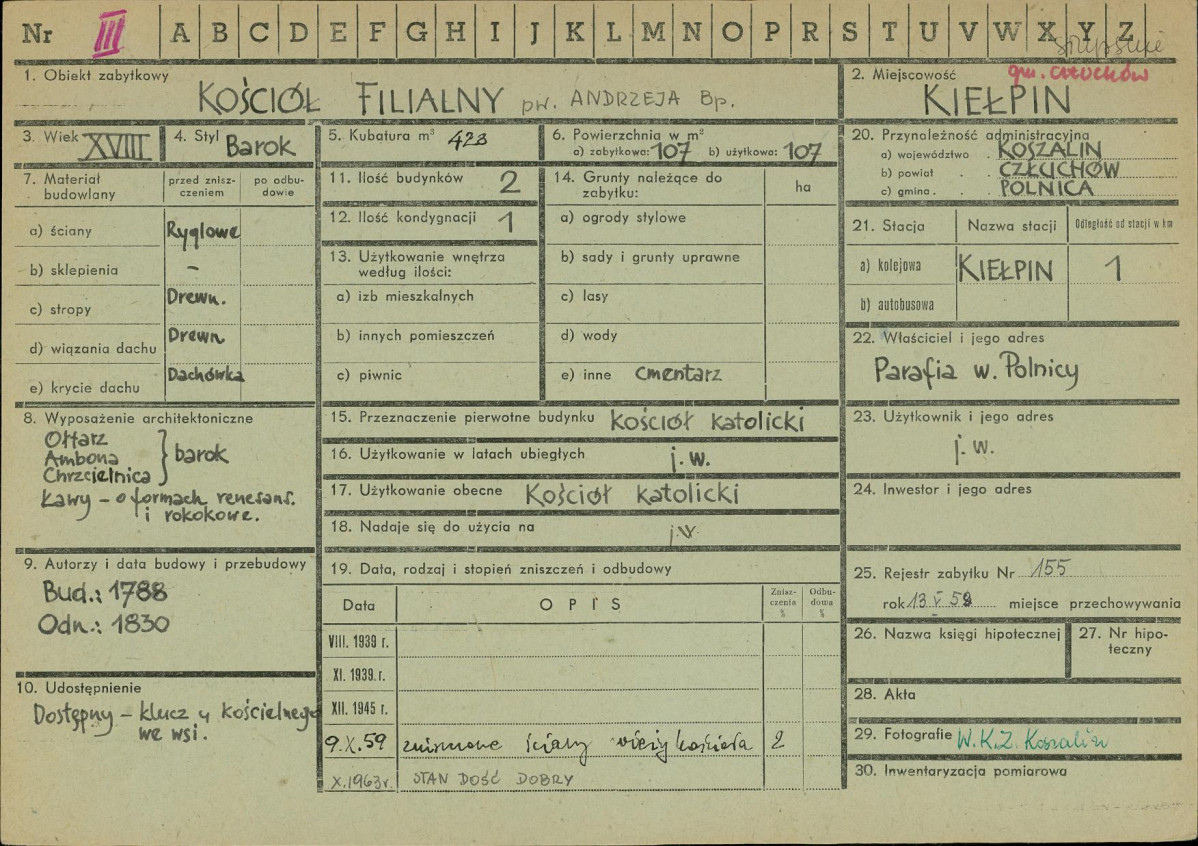 Nr III A B C D E F G H I J K L M N O P R S T U V W X Y Z
słupskie
1. Obiekt zabytkowy
KOŚCIÓŁ FILIALNY pw. ANDRZEJA Bp.
2. Miejscowość
gm. CZŁUCHÓW
KIEŁPIN
3. Wiek XVIII
4. Styl Barok
5. Kubatura m³ 423
6. Powierzchnia w m²
a) zabytkowa: 107 b) użytkowa: 107
20. Przynależność administracyjna
a) województwo . KOSZALIN
b) powiat . . CZŁUCHÓW
c) gmina . . POLNICA
7. Materiał budowlany
przed znisz-
czeniem
po odbu-
dowie
a) ściany Ryglowe
b) sklepienia –
c) stropy Drewn.
d) wiązania dachu Drewn.
e) krycie dachu Dachówka
11. Ilość budynków 2
12. Ilość kondygnacji 1
13. Użytkowanie wnętrza
według ilości:
a) izb mieszkalnych
b) innych pomieszczeń
c) piwnic
14. Grunty należące do
zabytku:
ha
a) ogrody stylowe
b) sady i grunty uprawne
c) lasy
d) wody
e) inne cmentarz
21. Stacja Nazwa stacji Odległość od stacji w km
a) kolejowa KIEŁPIN 1
b) autobusowa
22. Właściciel i jego adres
Parafia w. Polnicy
8. Wyposażenie architektoniczne
Ołtarz
Ambona
Chrzcielnica
barok
Ławy – o formach renesans.
i rokokowe.
15. Przeznaczenie pierwotne budynku Kościół katolicki
16. Użytkowanie w latach ubiegłych j.w.
17. Użytkowanie obecne Kościół katolicki
18. Nadaje się do użycia na j.w.
23. Użytkownik i jego adres
j.w.
24. Inwestor i jego adres
9. Autorzy i data budowy i przebudowy
Bud.: 1788
Odn.: 1830
19. Data, rodzaj i stopień zniszczeń i odbudowy
Data
OPIS
Znisz-
czenia
%
Odbu-
dowa
%
VIII. 1939 r.
XI. 1939. r.
XII. 1945 r.
9.X.59 ściany wieży kościoła 2
X.1963r. STAN DOŚĆ DOBRY
25. Rejestr zabytku Nr 155
rok 13 V 59 miejsce przechowywania
26. Nazwa księgi hipotecznej
27. Nr hipo-
teczny
10. Udostępnienie
Dostępny – klucz u kościelnego
we wsi.
28. Akta
29. Fotografie W.K.Z. Koszalin
30. Inwentaryzacja pomiarowa